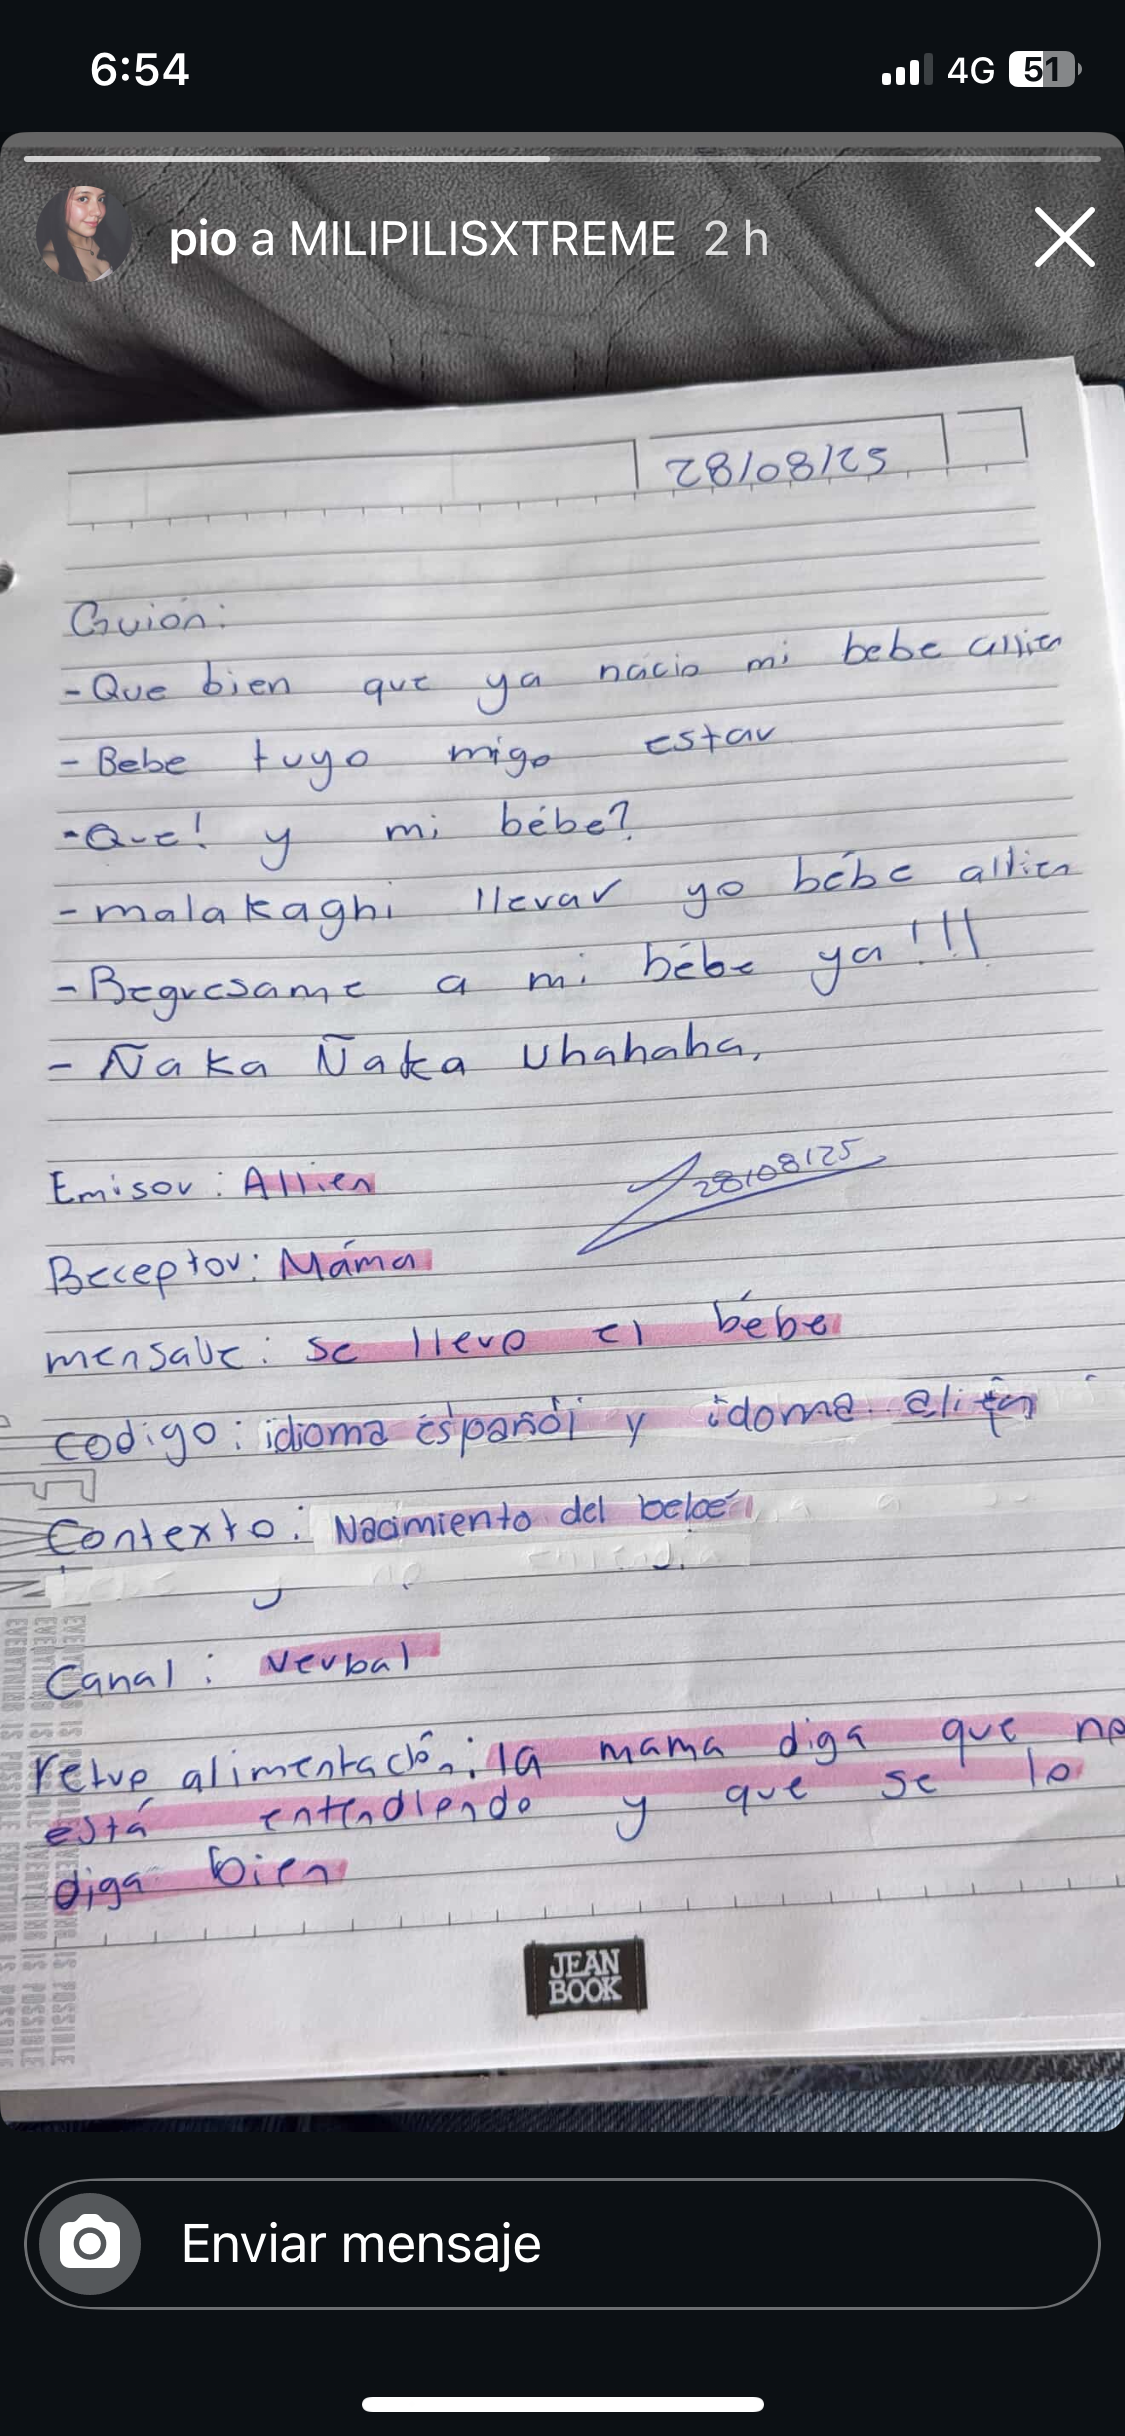 6:54
4G 51
pio a MILIPILISXTREME 2 h
28/08/25
Guión:
- Que bien que ya nacio mi bebe allien
- Bebe tuyo migo estar
- Que! y mi bébe?
- malakaghi llevar yo bébe allien
- Regresame a mi bébe ya!!!
- Ñaka Ñaka Uhahaha,
28/08/25
Emisor: Allien
Receptor: Máma
mensaje: se llevo el bébe
codigo: idioma español y idoma alien
Contexto: Nacimiento del bebé
Canal: Verbal
retroalimentación: la mama diga que no
está entendiendo y que se lo
diga bien
JEAN
BOOK
EVERYTHING IS POSSIBLE
Enviar mensaje